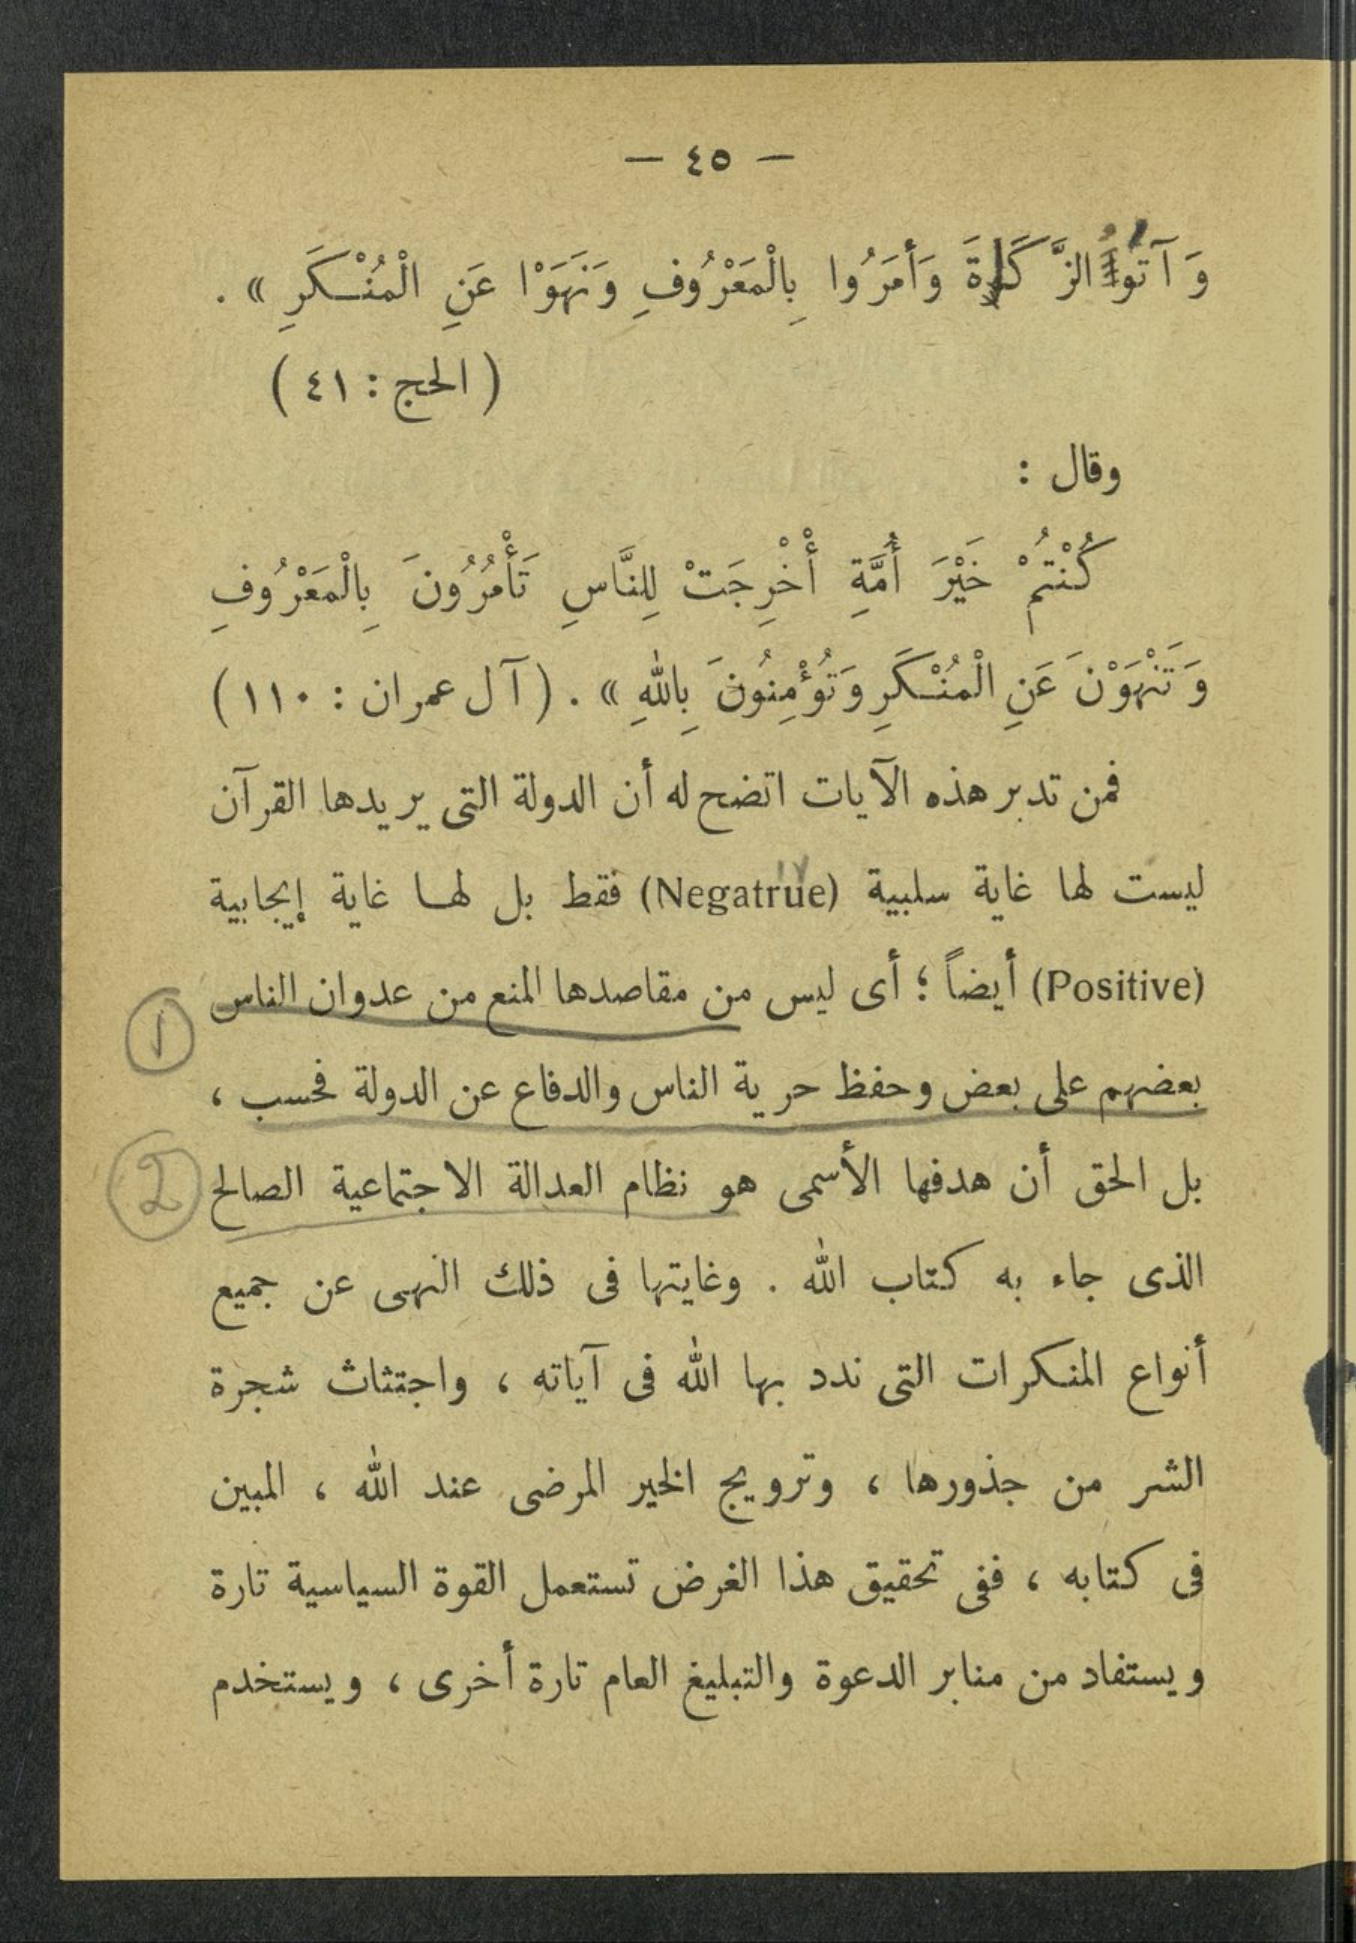 — ٤٥ —
وَآتَوُا الزَّكَاةَ وَأَمَرُوا بِالْمَعْرُوفِ وَنَهَوْا عَنِ الْمُنْكَرِ » .
( الحج : ٤١ )
وقال :
كُنْتُمْ خَيْرَ أُمَّةٍ أُخْرِجَتْ لِلنَّاسِ تَأْمُرُونَ بِالْمَعْرُوفِ
وَتَنْهَوْنَ عَنِ الْمُنْكَرِ وَتُؤْمِنُونَ بِاللهِ » . ( آل عمران : ١١٠ )
فمن تدبر هذه الآيات اتضح له أن الدولة التى يريدها القرآن
ليست لها غاية سلبية (Negatrue) فقط بل لها غاية إيجابية
(Positive) أيضاً ؛ أى ليس من مقاصدها المنع من عدوان الناس
1
بعضهم على بعض وحفظ حرية الناس والدفاع عن الدولة فحسب ،
بل الحق أن هدفها الأسمى هو نظام العدالة الاجتماعية الصالح
2
الذى جاء به كتاب الله . وغايتها فى ذلك النهى عن جميع
أنواع المنكرات التى ندد بها الله فى آياته ، واجتثاث شجرة
الشر من جذورها ، وترويج الخير المرضى عند الله ، المبين
فى كتابه ، ففى تحقيق هذا الغرض تستعمل القوة السياسية تارة
ويستفاد من منابر الدعوة والتبليغ العام تارة أخرى ، ويستخدم